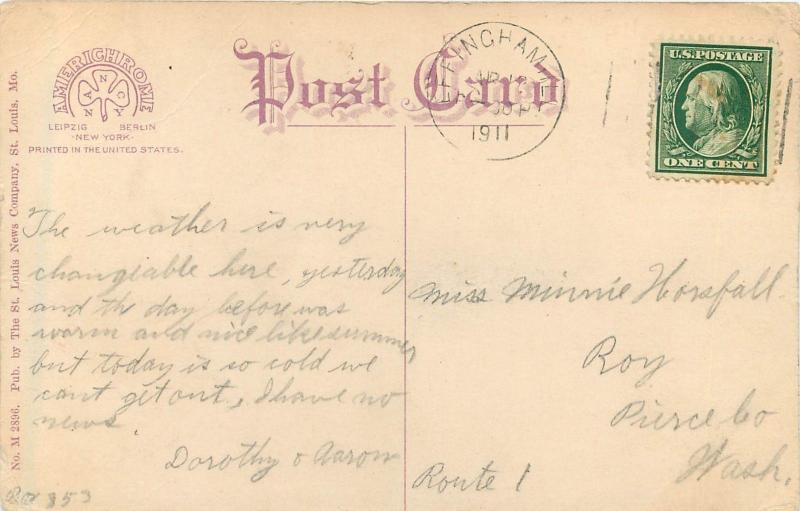 Post Card
AMERICHROME
NANCY
LEIPZIG BERLIN
-NEW YORK-
PRINTED IN THE UNITED STATES.
No. M 2896. Pub. by The St. Louis News Company, St. Louis, Mo.
FINGHAM
1911
U.S. POSTAGE
ONE CENT
The weather is very
changeable here, yesterday
and th day before was
warm and nice like summer
but today is so cold we
cant get out, I have no
news
Dorothy & Aaron
Miss Minnie Horsfall
Roy
Pierce Co
Wash.
Route 1
853